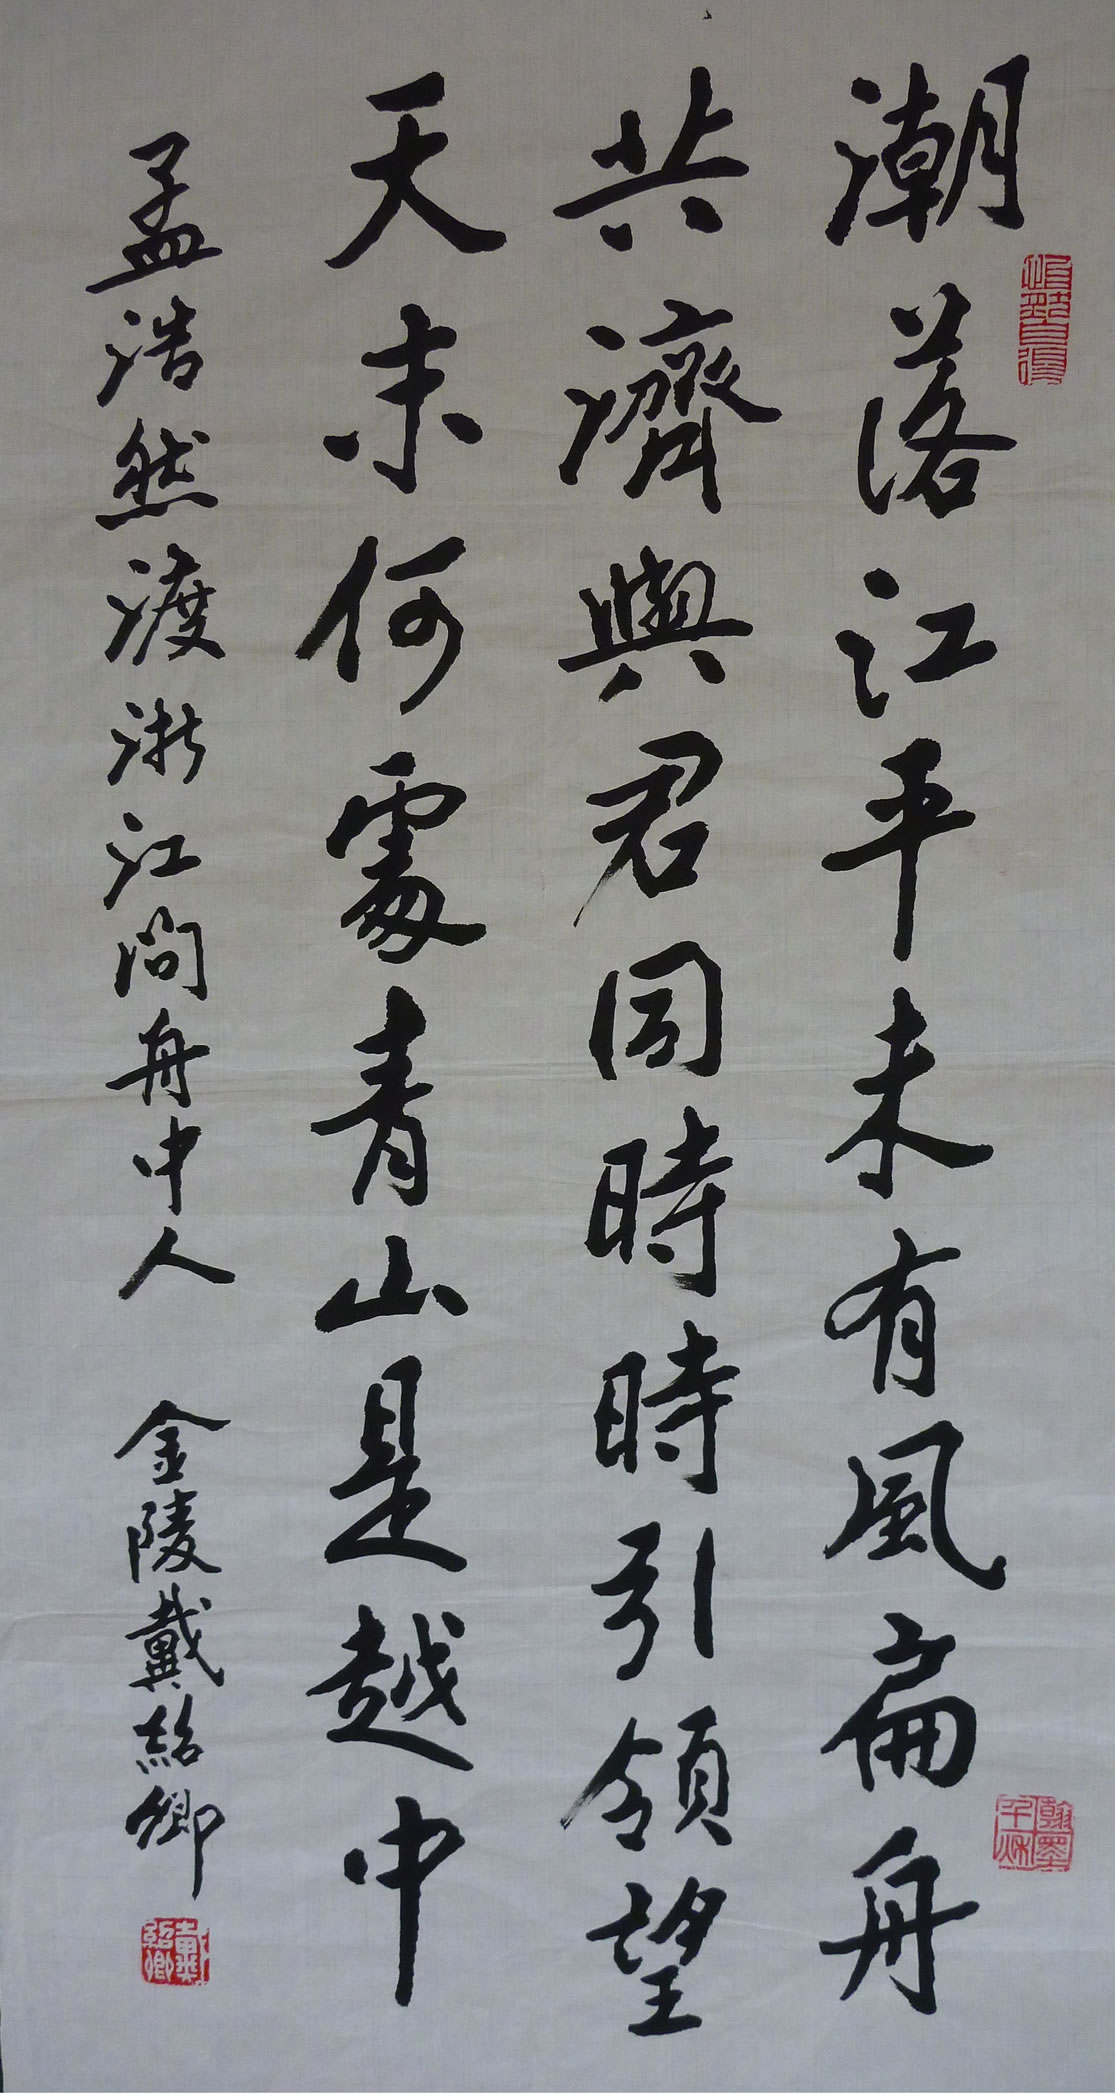 潮落江平未有風扁舟
共濟與君同時時引領望
天末何處青山是越中
孟浩然渡浙江問舟中人 金陵戴紹卿
翰墨千秋
戴紹卿